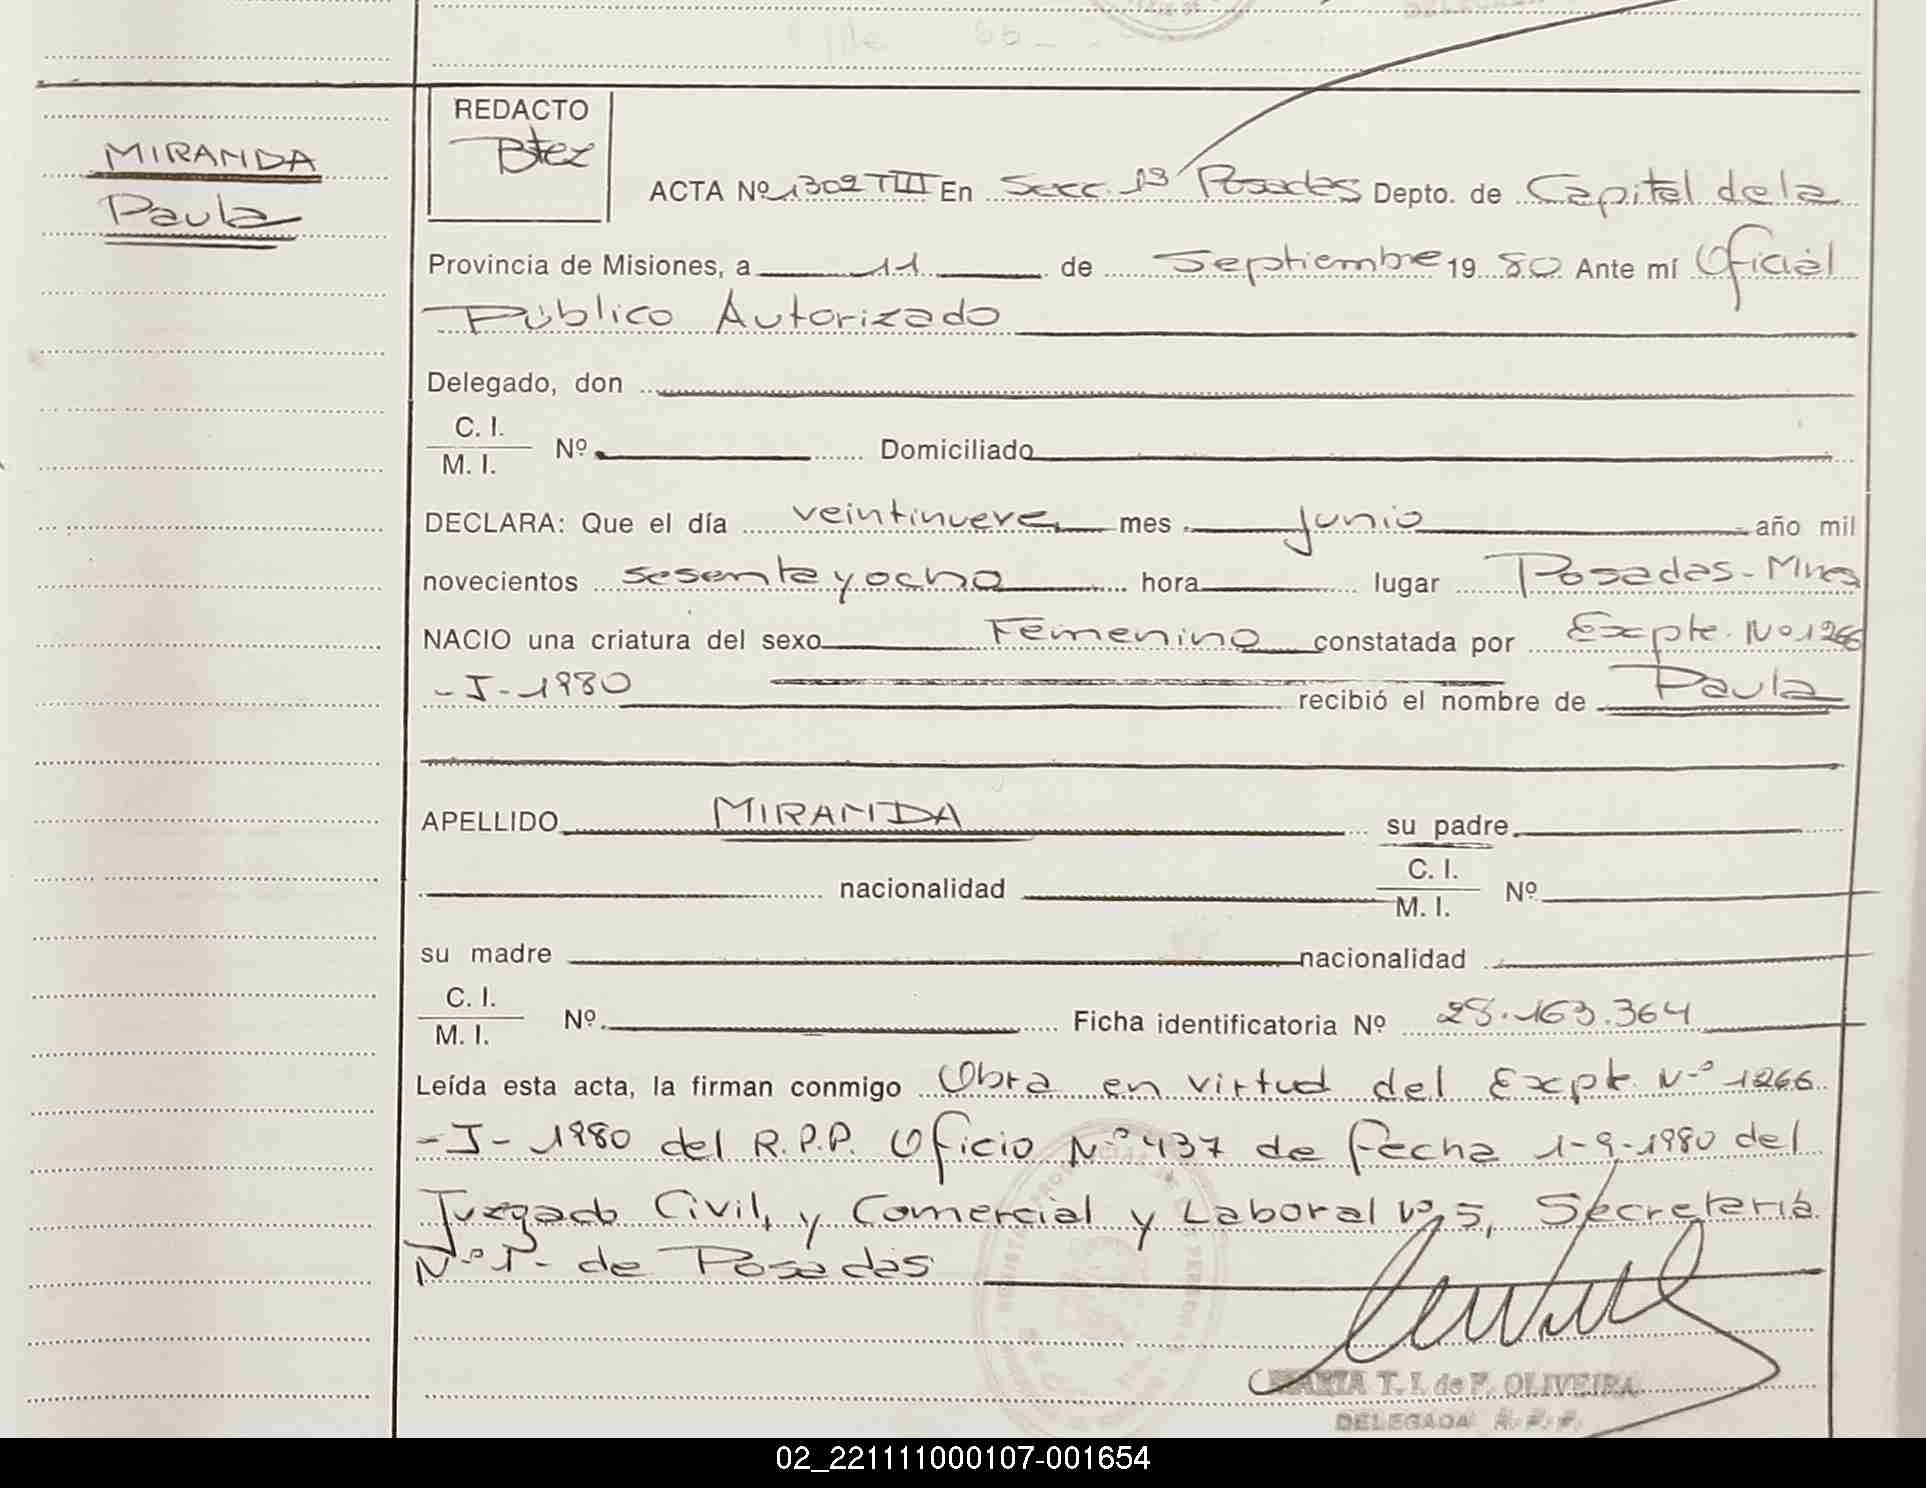 MIRANDA
Paula
REDACTO
Btez
ACTA Nº 1302 TIII En Secc. 1ª Posadas Depto. de Capital de la
Provincia de Misiones, a 11 de Septiembre 19 80 Ante mí Oficial
Público Autorizado
Delegado, don
C. I.
M. I. Nº Domiciliado
DECLARA: Que el día veintinueve mes junio año mil
novecientos sesenta y ocho hora lugar Posadas - Mnes
NACIO una criatura del sexo Femenino constatada por Expte. Nº 1266
- I - 1980 recibió el nombre de Paula
APELLIDO MIRANDA su padre
nacionalidad C. I.
M. I. Nº
su madre nacionalidad
C. I.
M. I. Nº Ficha identificatoria Nº 28.163.364
Leída esta acta, la firman conmigo Obra en virtud del Expte. Nº 1266
- I - 1980 del R.P.P. Oficio Nº 437 de fecha 1-9-1980 del
Juzgado Civil, y Comercial y Laboral Nº 5, Secretaría
Nº 1- de Posadas
MARIA T. I. de F. OLIVEIRA
DELEGADA
02_221111000107-001654